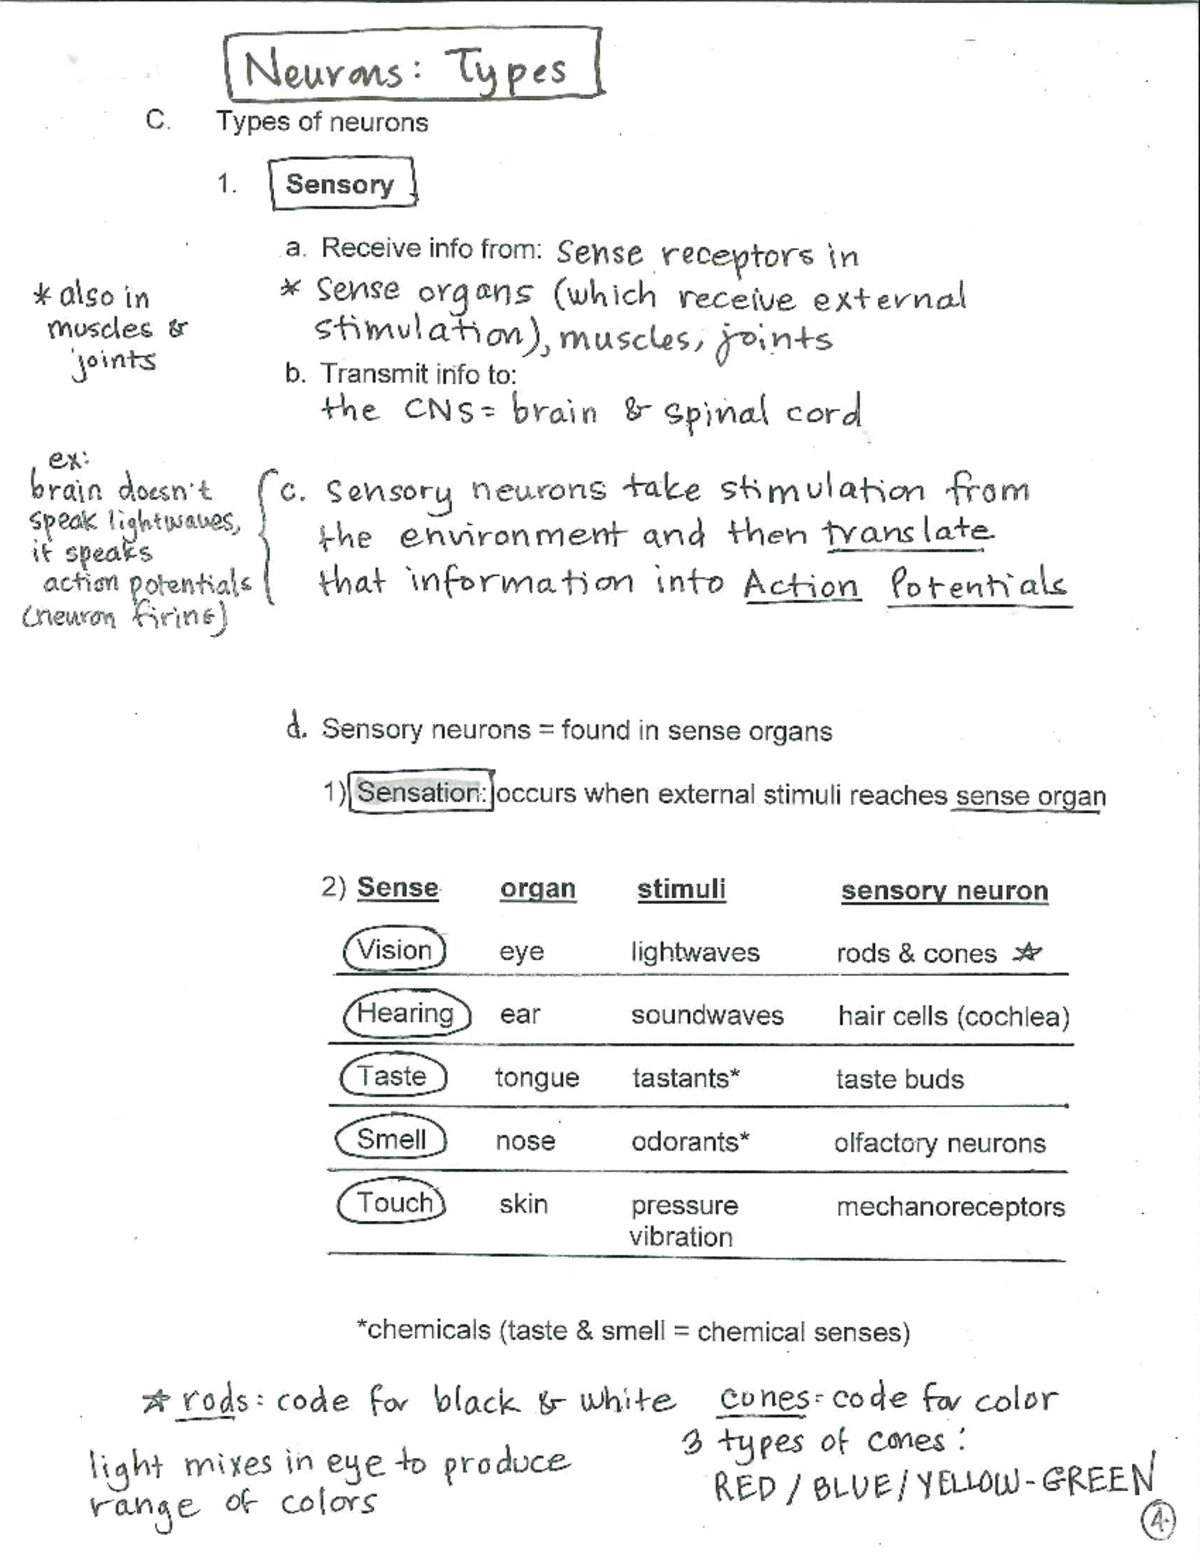 Neurons: Types
C. Types of neurons
1. Sensory
a. Receive info from: Sense receptors in
* Sense organs (which receive external
stimulation), muscles, joints
* also in
muscles &
joints
b. Transmit info to:
the CNS = brain & spinal cord
ex:
brain doesn't
speak lightwaves,
it speaks
action potentials
(neuron firing)
c. Sensory neurons take stimulation from
the environment and then translate
that information into Action Potentials
d. Sensory neurons = found in sense organs
1) Sensation: occurs when external stimuli reaches sense organ
2) Sense organ stimuli sensory neuron
Vision eye lightwaves rods & cones ☆
Hearing ear soundwaves hair cells (cochlea)
Taste tongue tastants* taste buds
Smell nose odorants* olfactory neurons
Touch skin pressure mechanoreceptors
vibration
*chemicals (taste & smell = chemical senses)
☆ rods: code for black & white cones = code for color
3 types of cones:
light mixes in eye to produce
RED / BLUE / YELLOW-GREEN
range of colors
4.